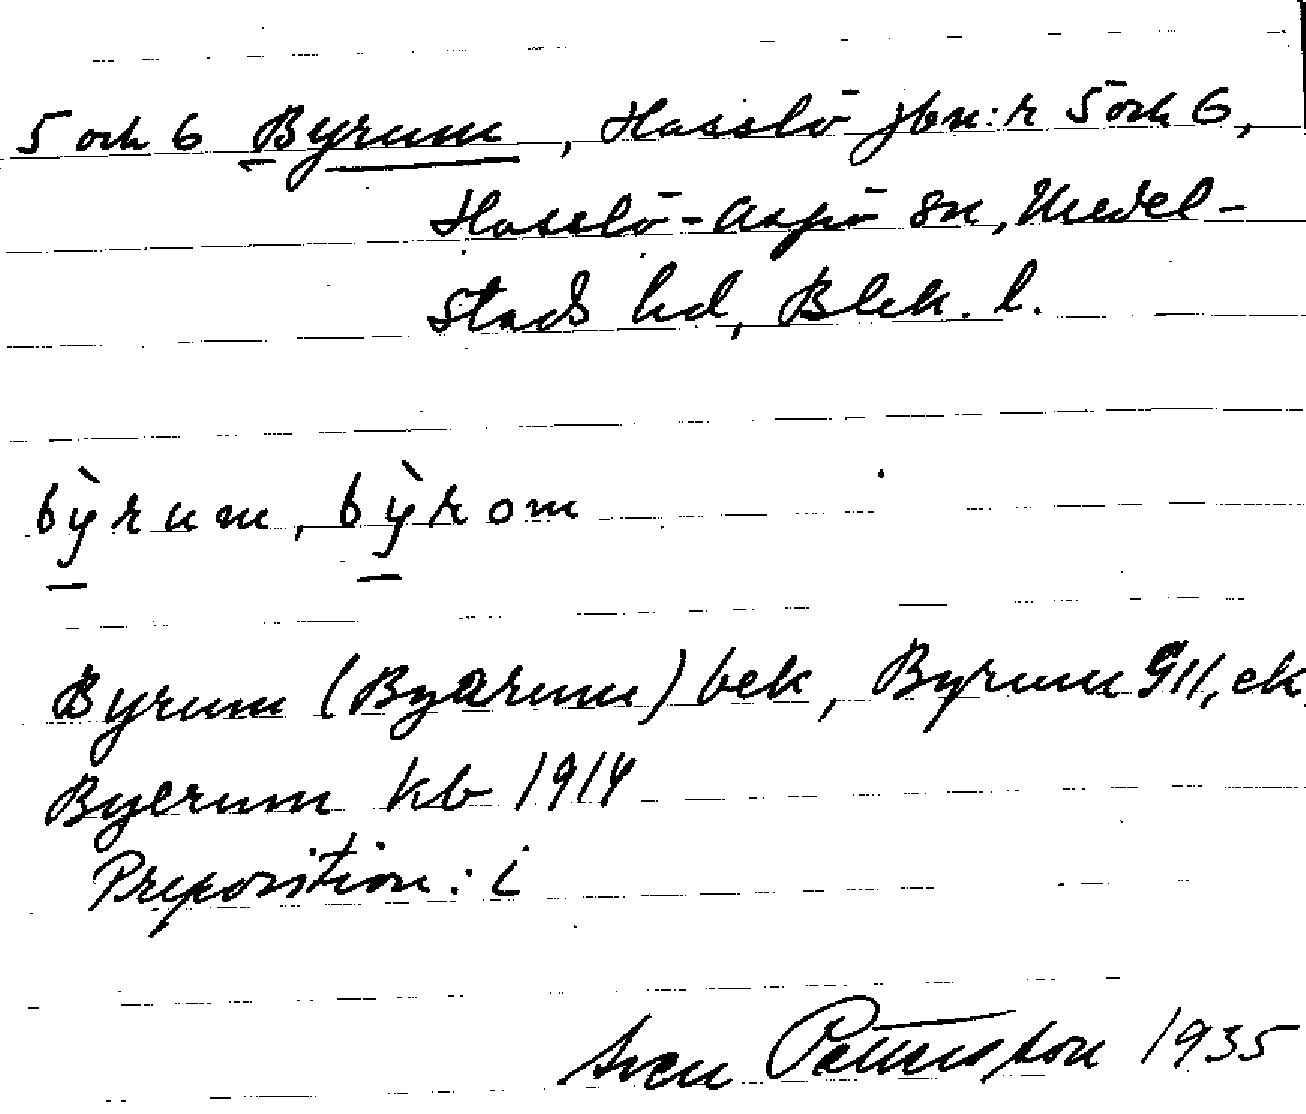 5 och 6 Byrum, Hasslö jbn:r 5 och 6,
Hasslö-Aspö sn, Medel-
stads hd, Blek. l.
bỳ̱rum, bỳ̱rom
Byrum (Byarum) bek, Byrum GII, ek
Byerum kb 1914
Preposition: i
Sven Petterson 1935